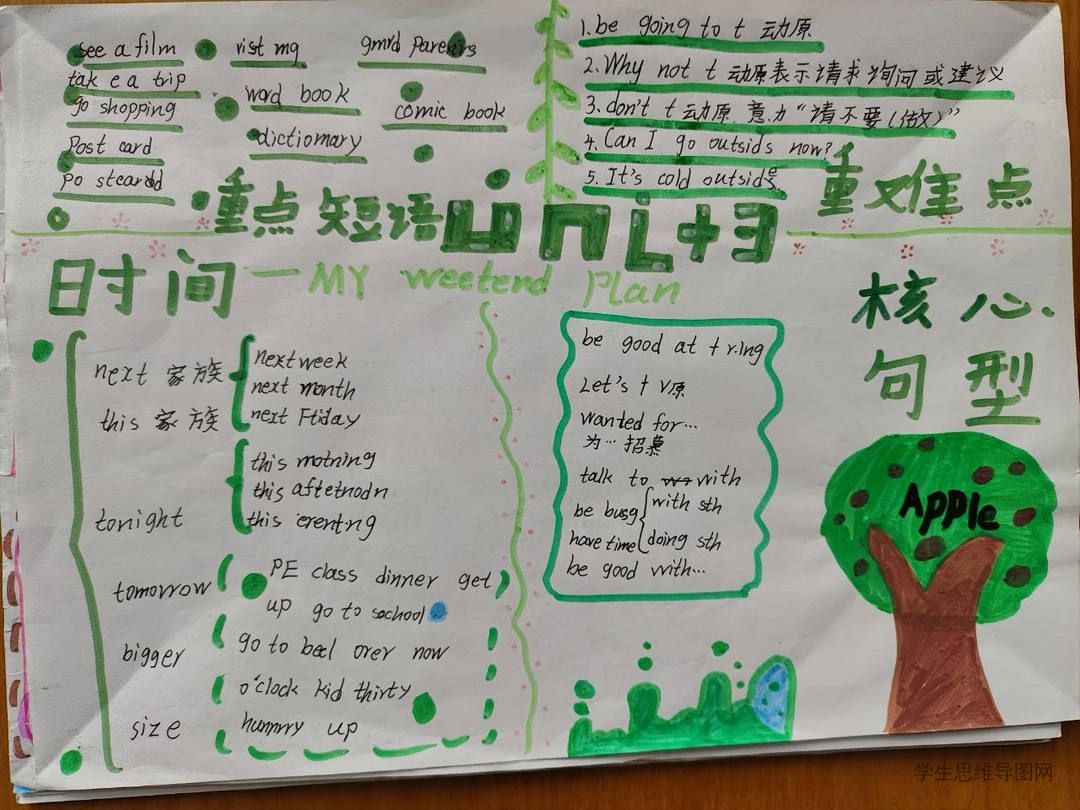 see a film
take a trip
go shopping
Post card
Po steardd
vist mg
gmrd Parents
word book
comic book
dictiomary
重点短语
1.be going to t 动原
2.Why not t 动原表示请求询问或建议
3.don't t 动原.意为“请不要(做)”
4.Can I go outsids now?
5.It's cold outside.
重难点
unit3
时间—MY weetend Plan
next 家族
next week
next month
next Ftiday
this 家族
this motning
this aftetnodn
this erentng
tonight
tomorrow
bigger
size
PE class dinner get
up go to school
go to bed orer now
o'clock kid thirty
up
核心.
句型
be good at t r.ing
Let's t V原
wanted for…
为…招募
talk to with
be busg
with sth
have time
doing sth
be good with…
Apple
学生思维导图网